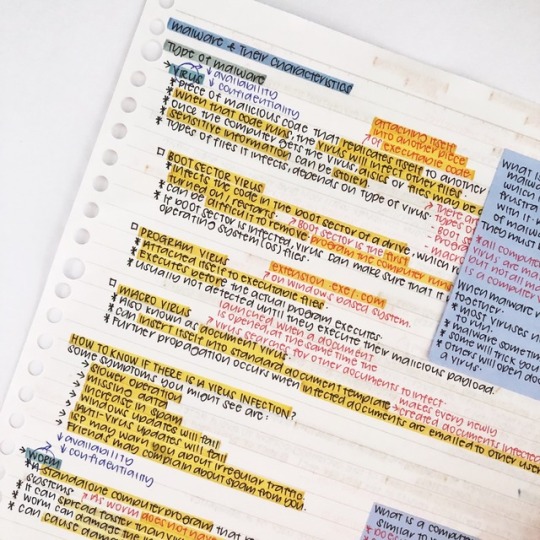 malware & their characteristics
Type of malware
VIRUS ↓ availability
↓ confidentiality
* piece of malicious code that replicates itself to another
attaching itself
into another piece
of executable code
* when that code runs, the virus will infect other files.
* once the computer gets the virus, disks or files may be
sensitive information can be stolen.
* types of files it infects, depends on type of virus.
There are
types of
□ BOOT SECTOR VIRUS
* infects the code in the boot sector of a drive, which
turned on/ restores.
* it be difficult to remove
boot sector is the first
program the computer runs
* if boot sector is infected, virus can make sure that it
operating system(os) files.
□ PROGRAM VIRUS
* attached itself to executable files.
extension .exe/.com
on windows based system.
* executes before the actual program executes.
* usually not detected until they execute their malicious payload.
□ MACRO VIRUS
launched when a document
is opened, at the same time the
virus searches for other documents to infect.
* Also known as document virus.
* can insert itself into standard document template
makes every newly
created documents infected
* Further propagation occurs when infected documents are emailed to other users
HOW TO KNOW IF THERE IS A VIRUS INFECTION?
some symptoms you might see are:
→ slower operation
→ missing data
→ increase in spam
→ windows updates will fail
→ anti-virus updates will fail
→ ISP may warn you about irregular traffic.
→ friends may complain about spam from you.
WORM ↓ availability
↓ confidentiality
* A standalone computer program that
systems.
as worm does not have
* it can spread faster than
* worm can damage the
* can cause
what is
malwa
which
frustra
with it.
of malw
they must
* all comput
virus are ma
but not all ma
is a computer v
When malware
together:
* most viruses
to run.
* malware sometim
* some will trick you
* others will open doo
a virus.
what is a compute
similar to